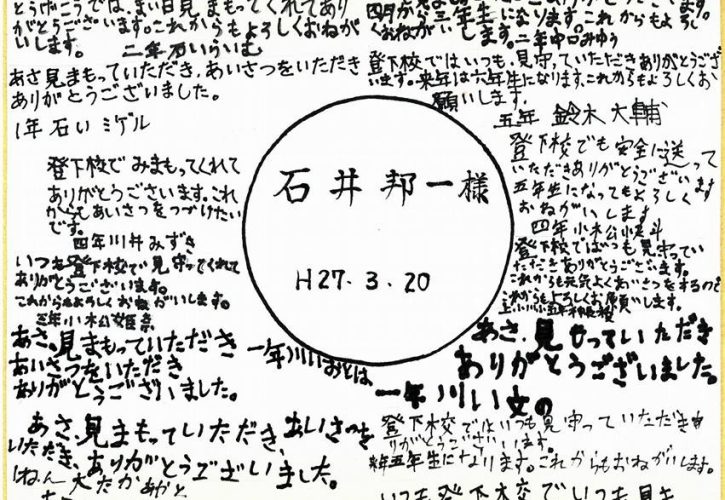 とうげこうでは、まい日見まもってくれてあり
がとうございます。これからもよろしくおねが
いします。
二年石いらいむ
あさ見まもっていただき、あいさつをいただき
ありがとうございました。
1年石いミゲル
登下校でみまもってくれて
ありがとうございます。これ
からもあいさつをつづけたい
です。
四年川井みずき
いつも登下校で見守ってくれて
ありがとうございます。
これからもよろしくおねがいします。
三年小松姫奈
あさ、見まもっていただき
あいさつをいただき
ありがとうございました。
一年川いおとは
あさ、見まもっていただき、あいさつを
いただき、ありがとうございました。
石井邦一様
H27.3.20
四月から三年生になります。これからもよろし
くおねがいします。二年中口みゆう
登下校ではいつも、見守っていただきありがとうござい
ます。来年は六年生になります。これからもよろしくお
願いします。
五年 鈴木大輔
登下校でも安全に送って
いただきありがとうございます
五年生になってもよろしく
おねがいします
四年小松
登下校ではいつも見守ってい
ただきありがとうございます。
これからも元気よくあいさつをするので
これからもよろしくお願いします。
あさ、見もっていただき
ありがとうございました。
一年川い文の
登下校ではいつも見守っていただきあ
りがとうございます。
来年五年生になります。これからもおねがいします。
いつも登下校でいつも見き